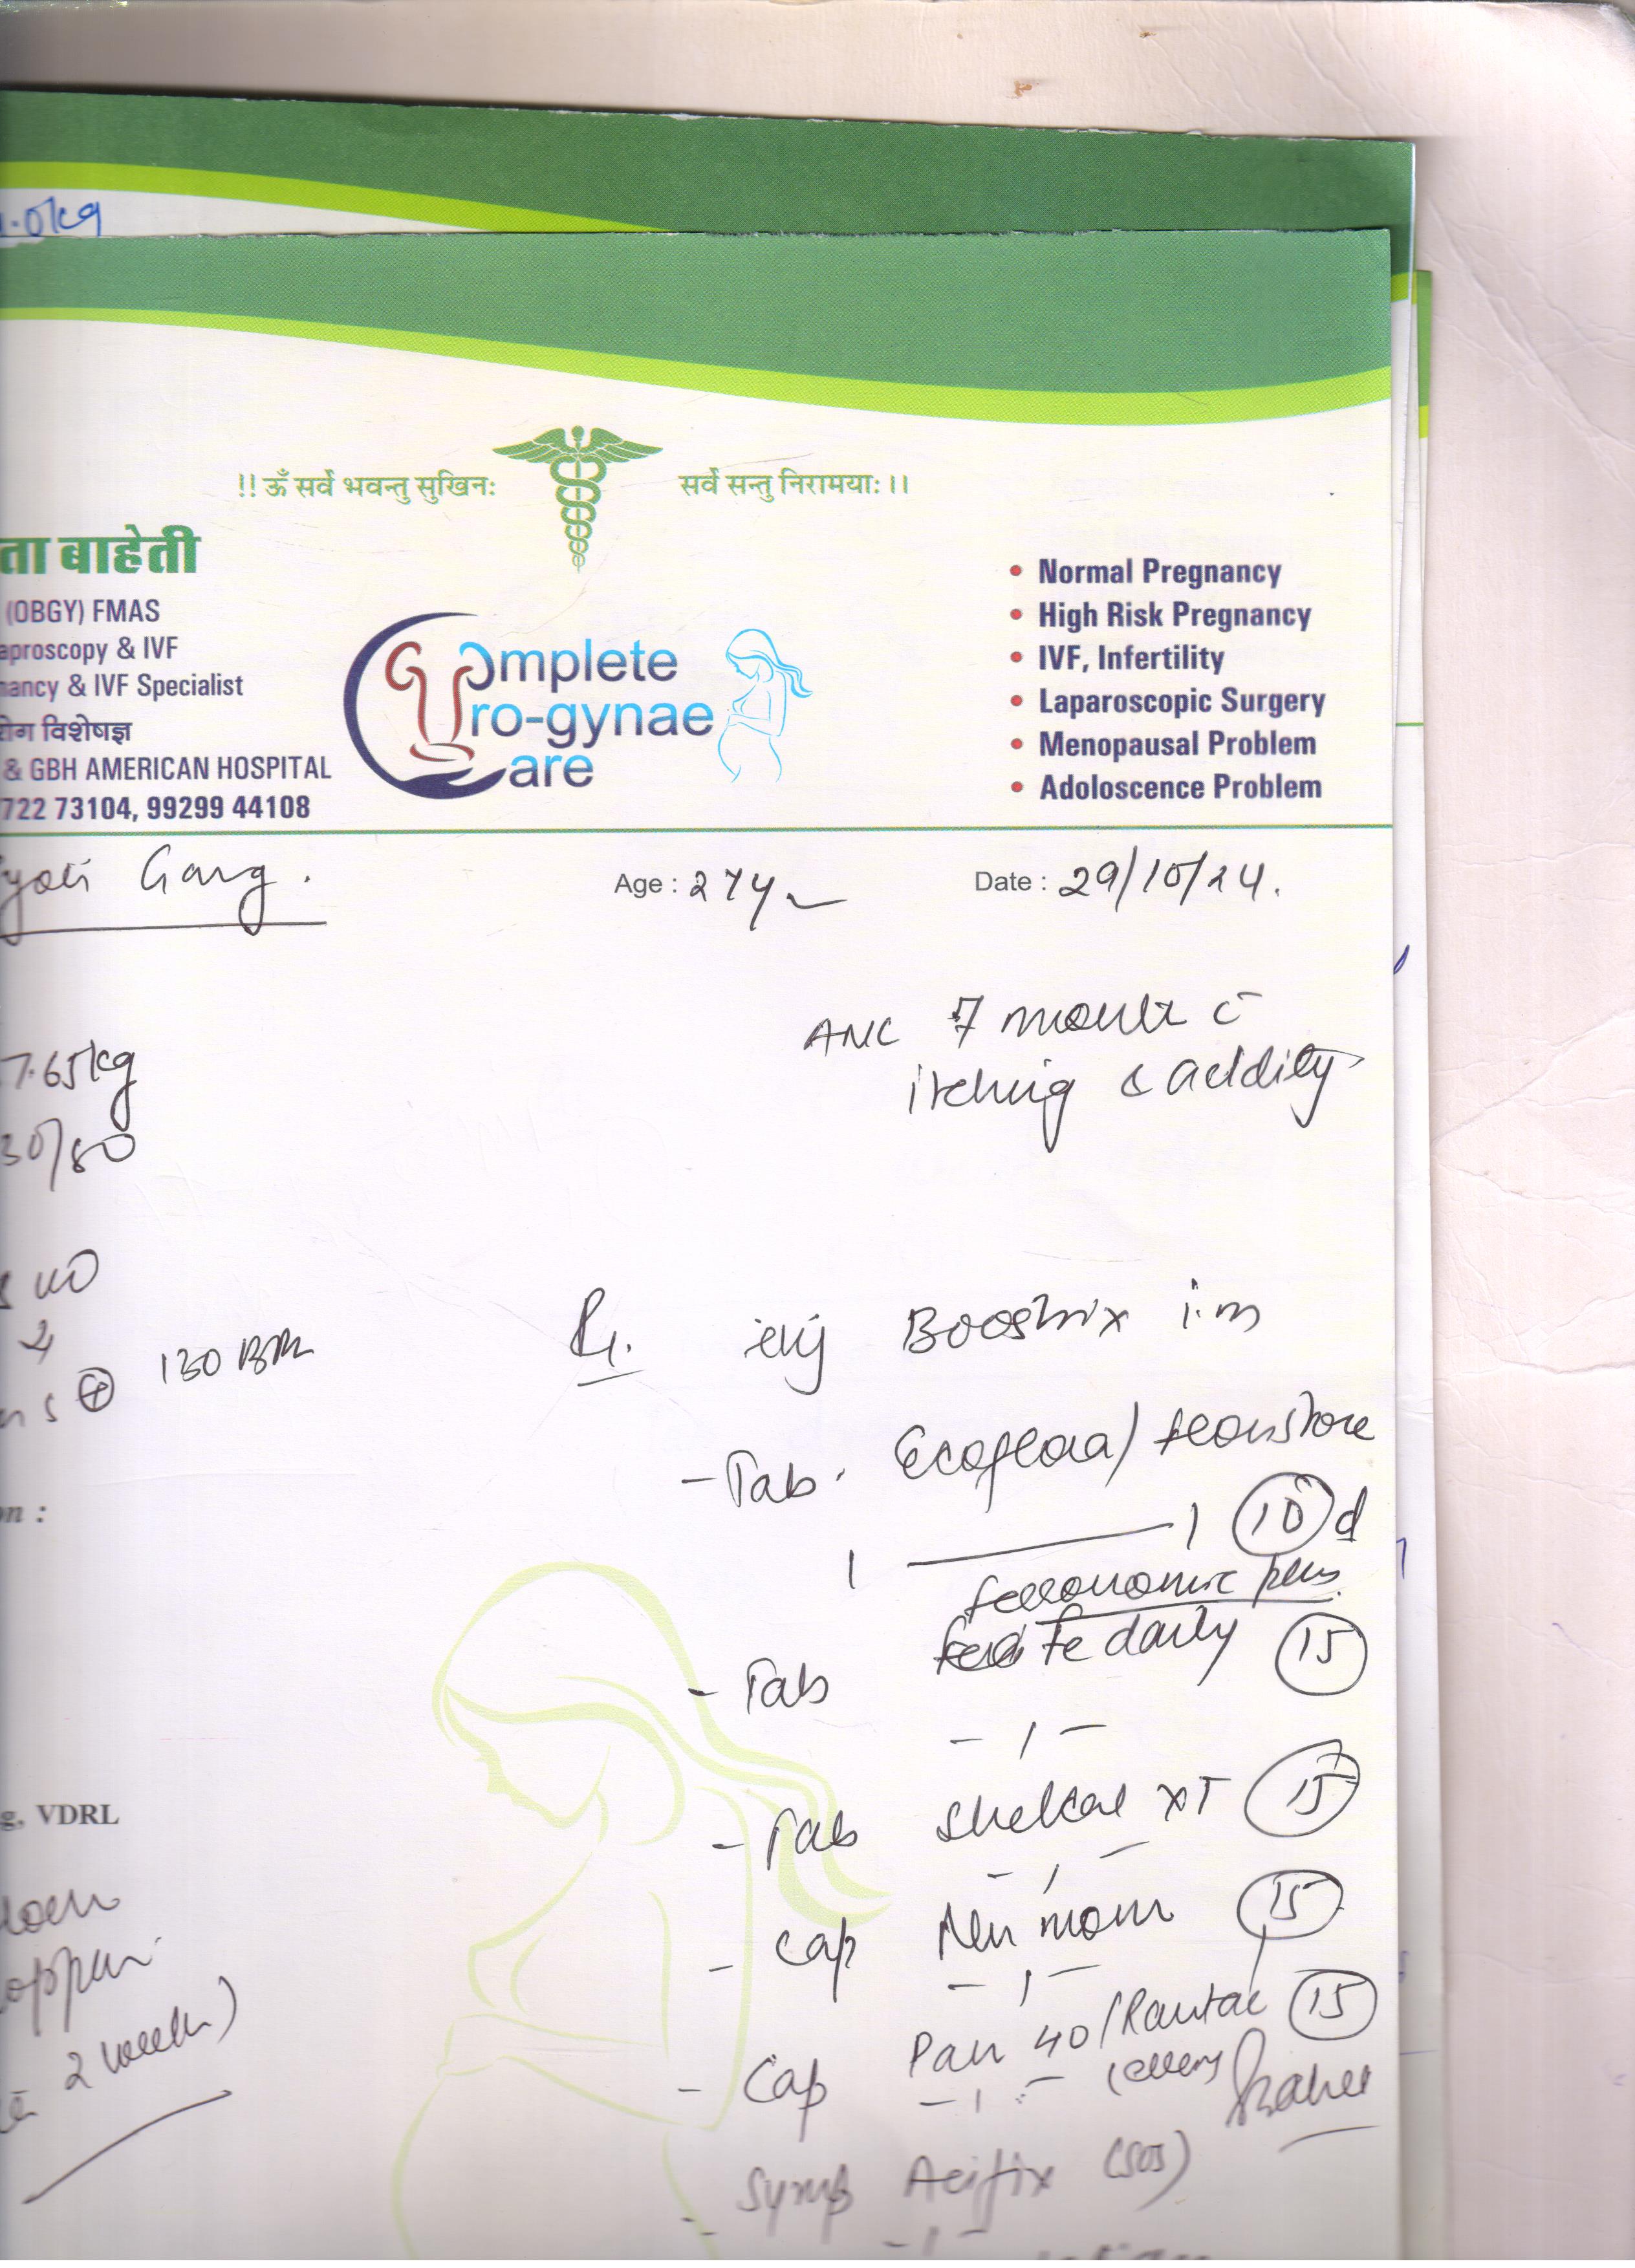 .0kg
!! ॐ सर्वे भवन्तु सुखिनः सर्वे सन्तु निरामयाः ।।
ता बाहेती
(OBGY) FMAS
aproscopy & IVF
nancy & IVF Specialist
रोग विशेषज्ञ
& GBH AMERICAN HOSPITAL
722 73104, 99299 44108
Complete
Uro-gynae
Care
• Normal Pregnancy
• High Risk Pregnancy
• IVF, Infertility
• Laparoscopic Surgery
• Menopausal Problem
• Adoloscence Problem
yoti Garg.
Age : 27y
Date : 29/10/24.
ANC 7 month c̄
itching & acidity
7.65kg
30/80
130 BPM
Rx. inj Boostrix i.m
- Tab. Ecoflora /
1 — 1 (10) d
ferronomic plus
- Tab Fe daily (15)
- 1 -
- Tab Shelcal XT (15)
- 1 -
- Cap mom (15)
- 1 -
- Cap Pan 40 / Rantac (15)
- 1 -
- Symp Acifix (SOS)
- 1 -
on :
g, VDRL
2 week)